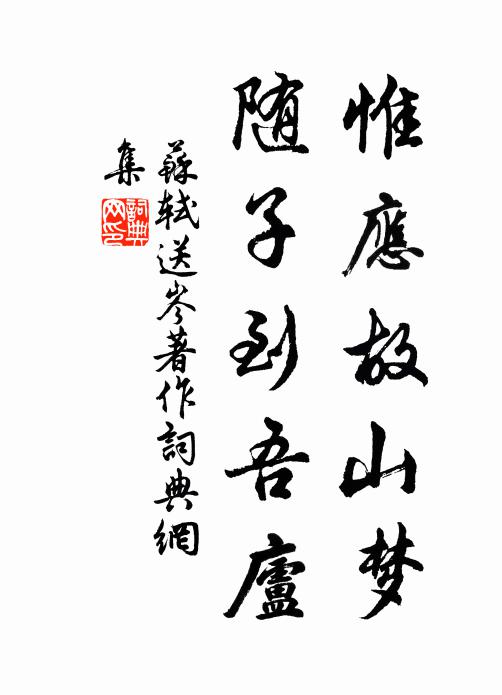 惟應故山梦
随子到吾廬
蘇軾送岑著作詞典網
集
詞典網印